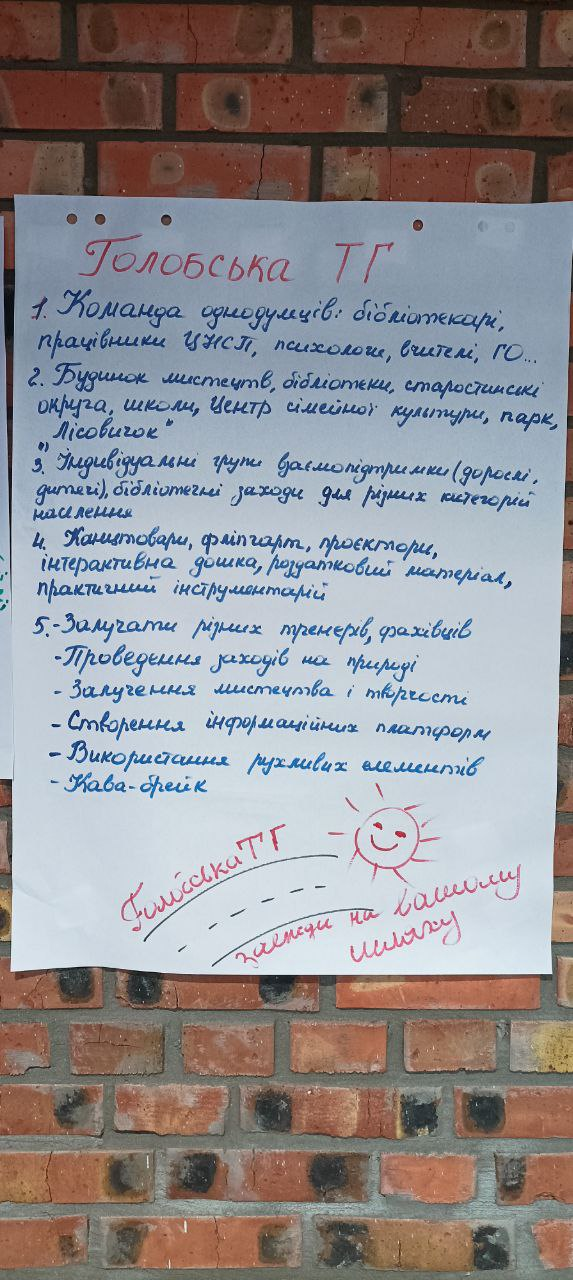 Голобська ТГ
1. Команда однодумців: бібліотекарі,
працівники ЦНСП, психологи, вчителі, ГО...
2. Будинок мистецтв, бібліотеки, старостинські
округа, школи, Центр сімейної культури, парк,
"Лісовичок"
3. Індивідуальні групи взаємопідтримки (дорослі,
дитячі), бібліотечні заходи для різних категорій
населення
4. Канцтовари, фліпчарт, проєктори,
інтерактивна дошка, роздатковий матеріал,
практичний інструментарій
5. - Залучати різних тренерів, фахівців
- Проведення заходів на природі
- Залучення мистецтва і творчості
- Створення інформаційних платформ
- Використання рухливих елементів
- Кава-брейк
Голобська ТГ
завжди на вашому
шляху